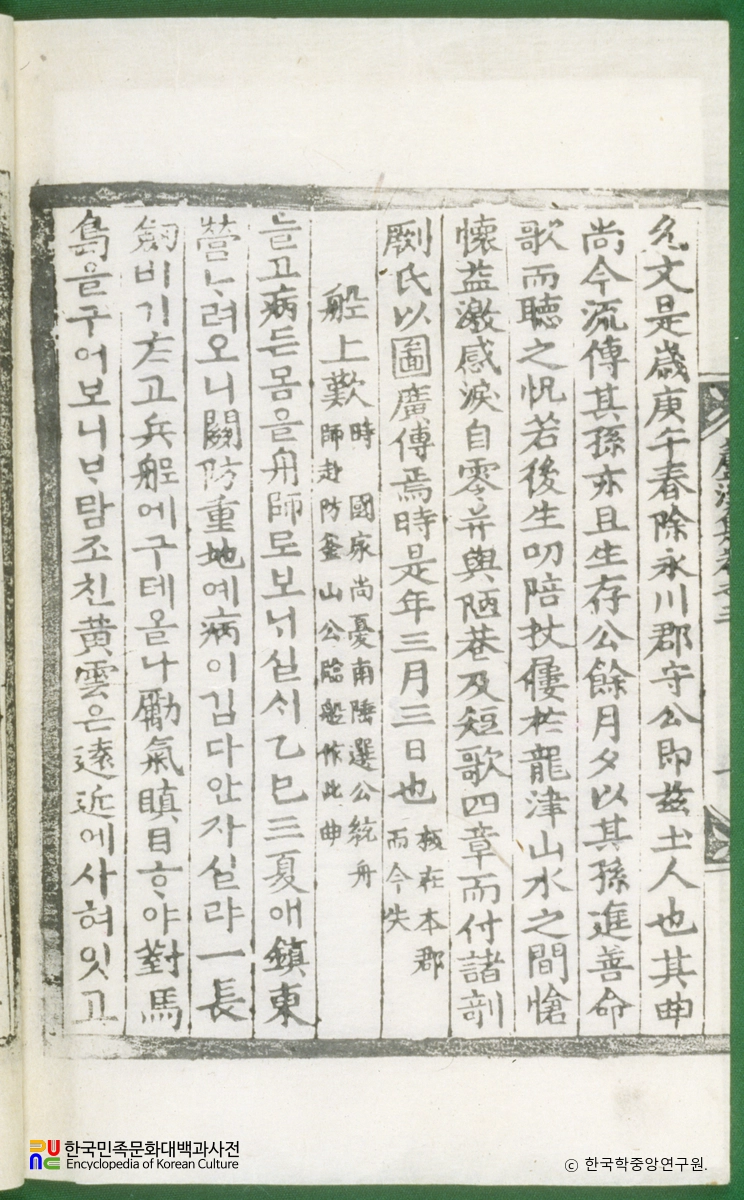 允文是歲庚午春除永川郡守公即玆土人也其曲
尚今流傳其孫亦且生存公餘月夕以其孫進善命
歌而聽之怳若後生叨陪杖屨於龍津山水之間愴
懷益激感淚自零并與陋巷及短歌四章而付諸剞
劂氏以圖廣傳焉時是年三月三日也 板在本郡
而今失
船上歎 時國家尚憂南陲選公統舟
師赴防釜山公臨船作此曲
늘고病든몸을舟師로보ᄂᆡ실ᄉᆡ乙巳三夏애鎭東
營ᄂᆞ려오니關防重地예病이깁다안자실랴一長
劒비기ᄎᆞ고兵船에구테올나勵氣瞋目ᄒᆞ야對馬
島을구어보니ᄇᆞ람조친黃雲은遠近에사혀잇고
한국민족문화대백과사전
Encyclopedia of Korean Culture
ⓒ 한국학중앙연구원.